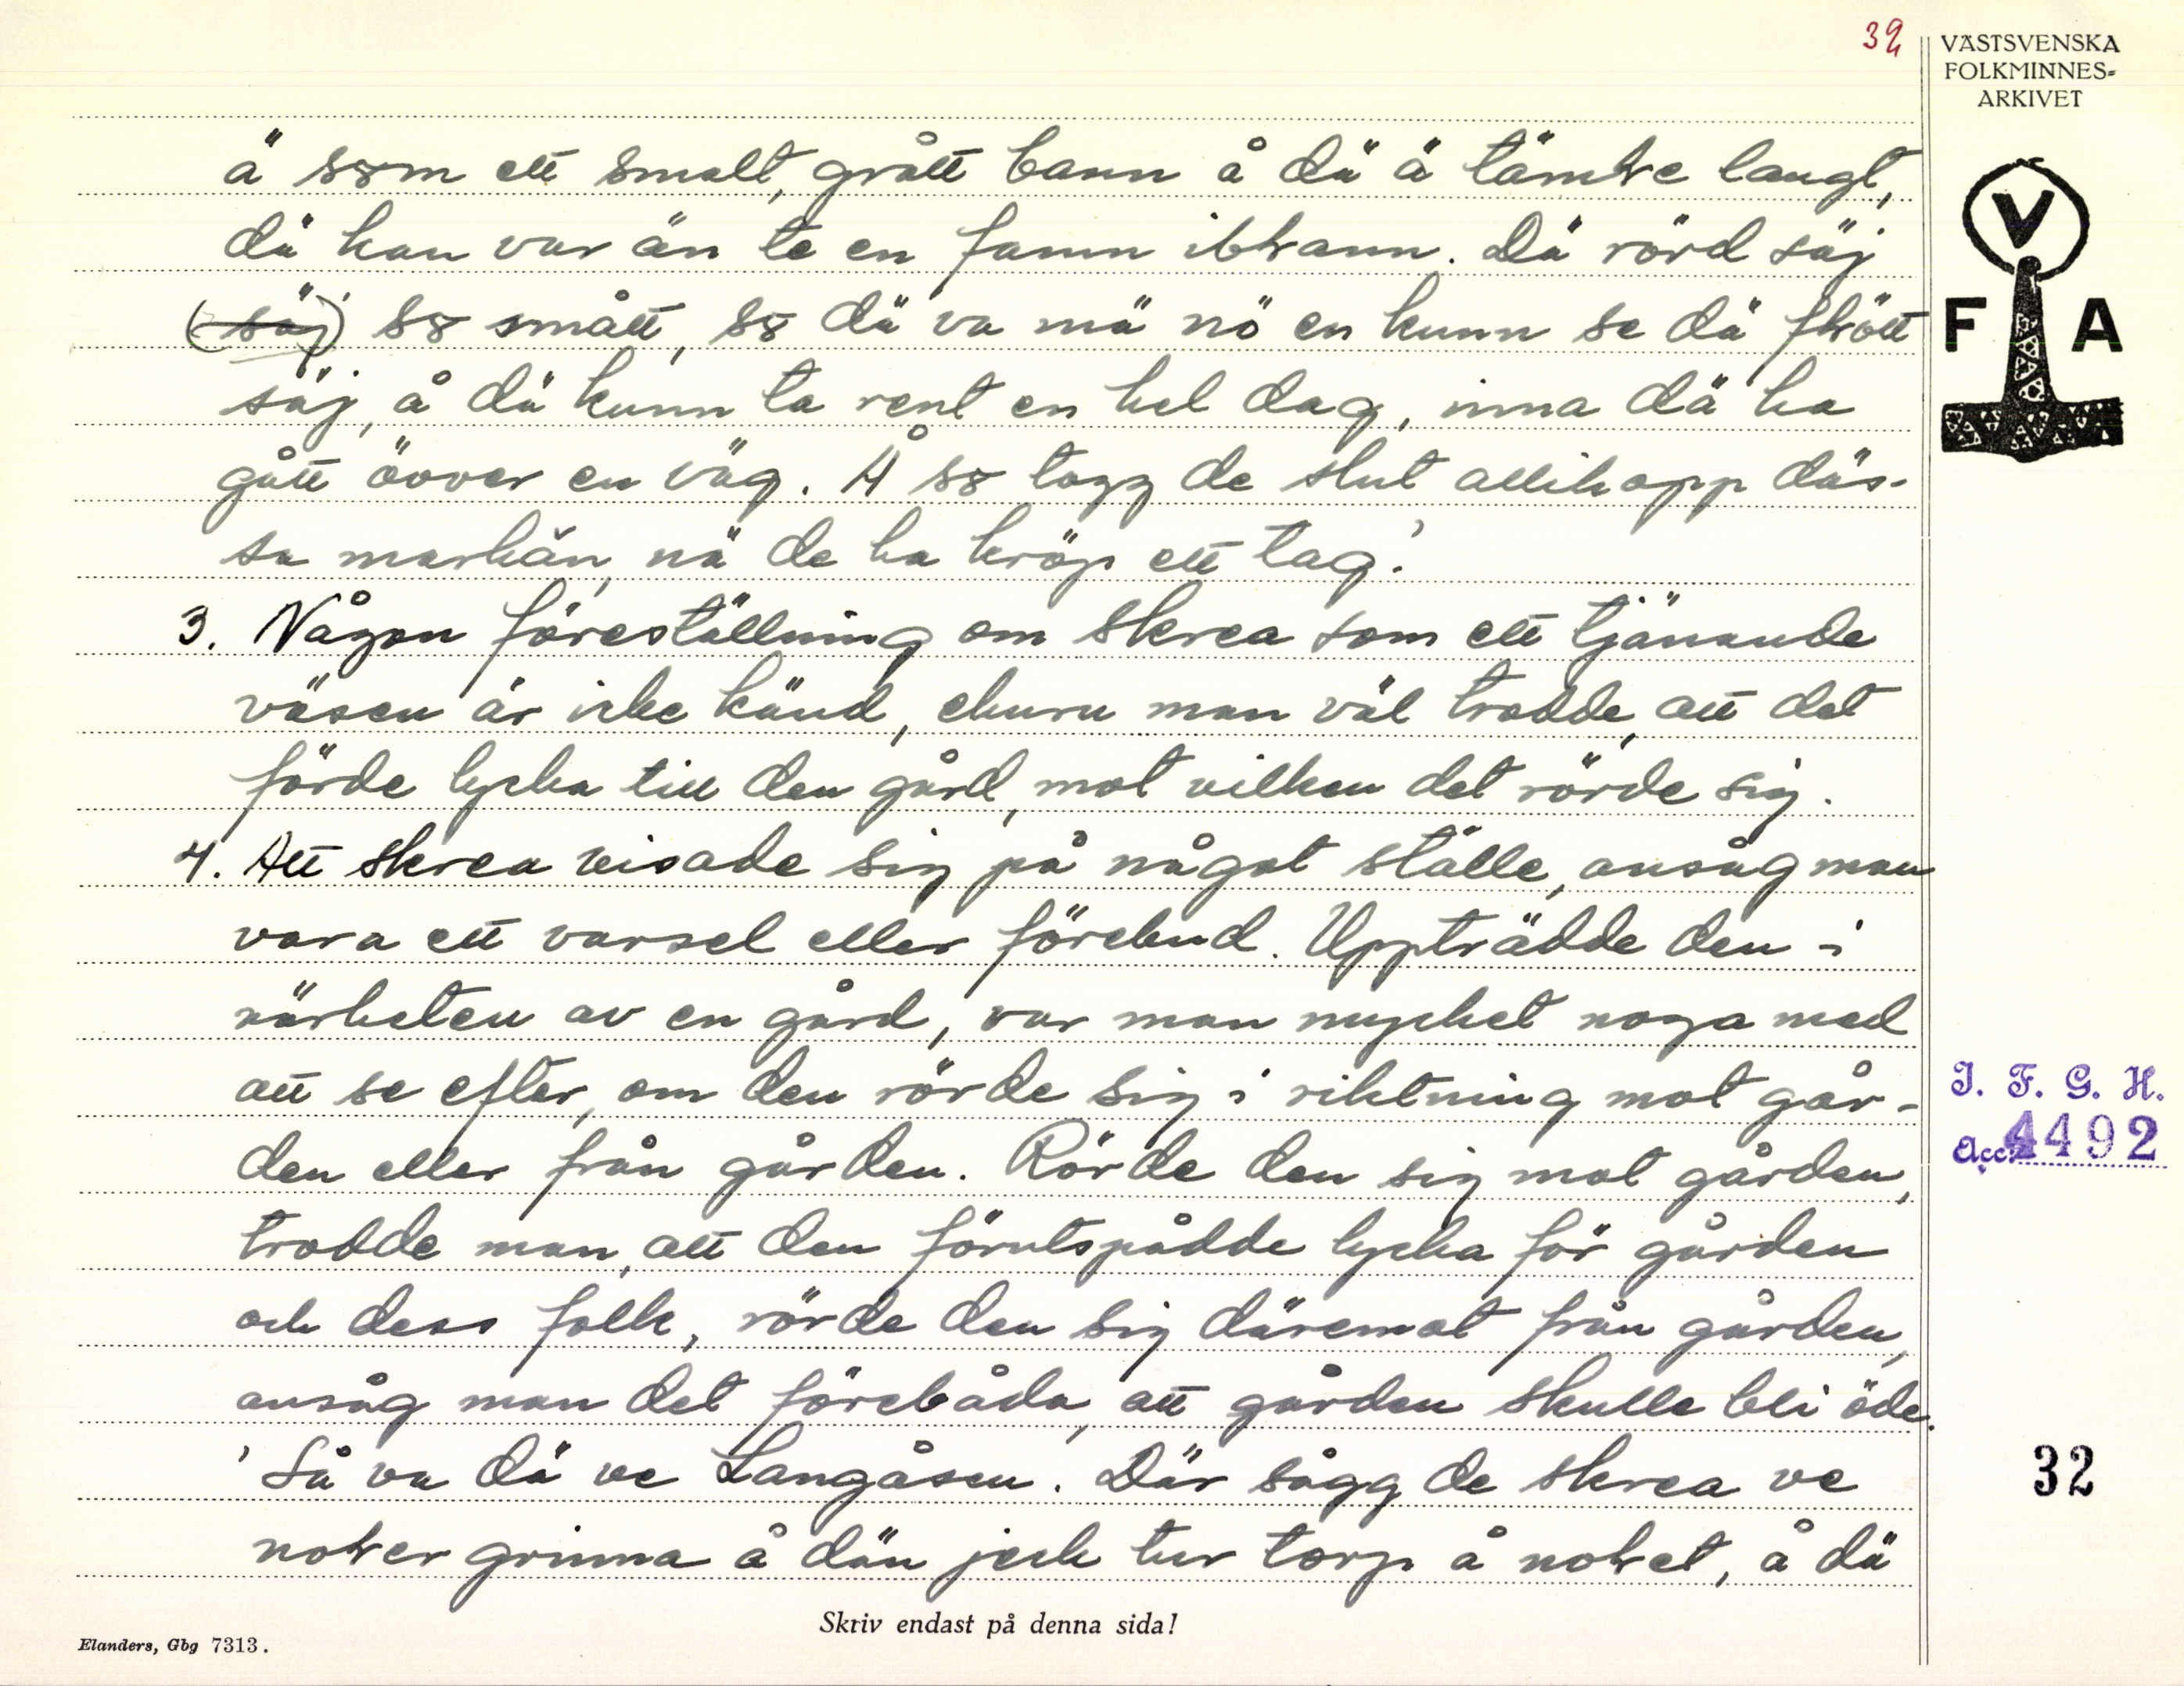 32
VÄSTSVENSKA
FOLKMINNES-
ARKIVET
V
F A
ä s8m ett smalt, grått bann å dä ä tämle langt,
dä kan var än te en famn iblann. Dä rörd säj
(säj) s8 smått, s8 dä va mä nö en kunn se dä flött
säj, å dä kunn ta rent en hel dag, inna dä ha
gått övver en väg. Å s8 togg de slut allihopp däs-
sa markän, nä de ha kröp ett tag.'
3. Någon föreställning om skrea som ett tjänande
väsen är icke känd, ehuru man väl trodde, att det
förde lycka till den gård, mot vilken det rörde sig.
4. Att skrea visade sig på något ställe, ansåg man
vara ett varsel eller förebud. Uppträdde den i
närheten av en gård, var man mycket noga med
att se efter, om den rörde sig i riktning mot går-
den eller från gården. Rörde den sig mot gården,
trodde man, att den förutspådde lycka för gården
och dess folk, rörde den sig däremot från gården,
ansåg man det förebåda, att gården skulle bli öde.
'Så va dä ve Langåsen. Där sågg de skrea ve
norer grinna å dän jeck tur torp å noret, å dä
I. F. G. H.
Acc. 4492
32
Skriv endast på denna sida!
Elanders, Gbg 7313.